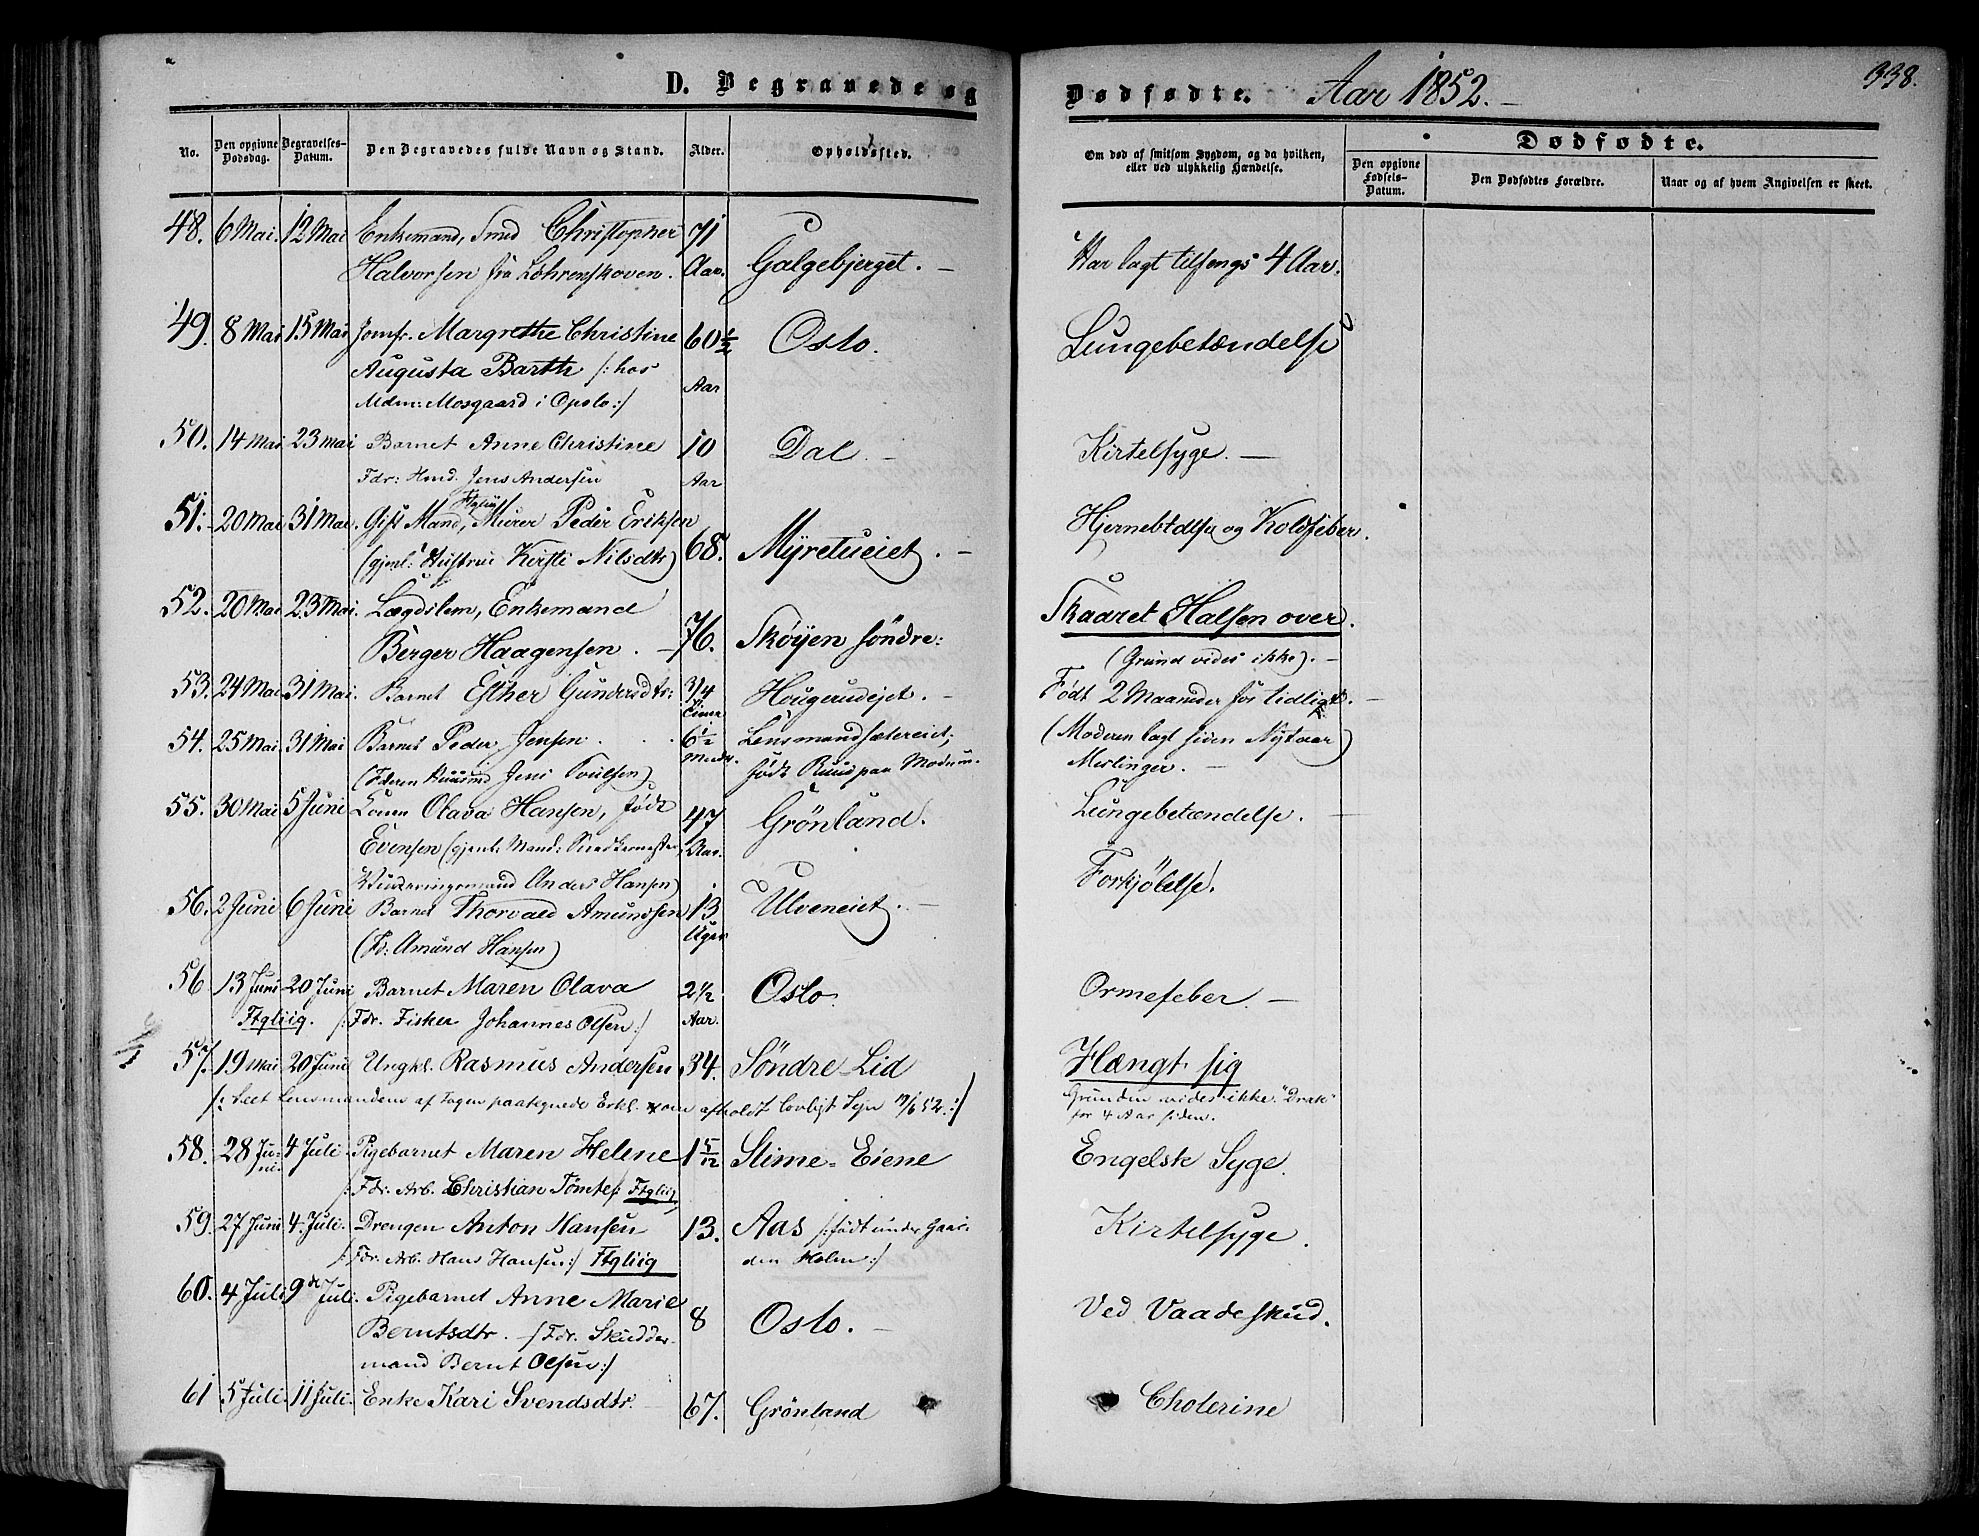 D. Begravede og Dødfødte. Aar 1852. 338.
No. Den opgivne Dødsdag. Begravelses-Datum. Den Begravedes fulde Navn og Stand. Alder. Opholdssted. Om død af smitsom Sygdom, og da hvilken, eller ved ulykkelig Hændelse. Dødfødte.
Den opgivne Fødsels-Datum. Den Dødfødtes Forældre. Naar og af hvem Angivelsen er skeet.
48. 6 Mai. 12 Mai Enkemand, Smed Christopher 71
Halvorsen fra Lohrenskoven. Aar. Galgebjerget. — Har lagt tilsengs 4 Aar.
49. 8 Mai 15 Mai Jomfr. Margrethe Christine 60½ Oslo. Lungebetændelse
Augusta Barth /: hos Aar
Mdm: Mosgaard i Opslo :/
50. 14 Mai 23 Mai Barnet Anne Christine 10 Dal — Kirtelsyge. —
Fdr: Hmd. Jens Andersen Aar
51. 20 Mai 31 Mai. Gift Mand, Murer Peder Eriksen Hjernebtdlse og Koldfeber.
(gjenl: Hustrue Kirsti Nilsdtr) 68. Myretueiet. —
52. 20 Mai 23 Mai. Lægdslem, Enkemand Skaaret Halsen over.
Berger Haagensen. — 76. Skøyen søndre: (Grund vides ikke). —
53. 24 Mai 31 Mai. Barnet Esther Gundersdtr: 3/4 Hougerudejet. — Født 2 Maaneder for tidligt. —
Time
54. 25 Mai. 31 Mai Barnet Peder Jensen 6½ Lensmandsætereiet; (Moderen lagt siden Nytaar)
(Fderen Huusmd Jens Poulsen) Mndr. født Ruud paa Modum. Meslinger. —
55. 30 Mai 5 Juni Konen Olava Hansen, født 47 Grönland. Lungebetændelse. —
Evensen (gjenl: Mand: Snedkermester, Aar.
Vurderingsmand Anders Hansen) Forkjølelse.
56. 2 Juni 6 Juni Barnet Thorvald Amundsen 13 Ulveneiet. —
(Fd: Amund Hansen) Uger
56 13 Juni 20 Juni Barnet Maren Olava 2½ Oslo Ormefeber —
Ftgliig. /: Fdr. Fisker Johannes Olsen :/ Aar.
57. 19 Mai 20 Juni Ungkl. Rasmus Andersen 34. Söndre Lid Hængt sig
/: Seet Lensmandens af Fogen paategnede Erkl. om afholdt lovligt Syn 19/6 52. :/ Grunden vides ikke. "Drak" for 4 Aar siden.
58. 28 Juni 4 Juli Pigebarnet Maren Helene 1 5/12 Slime-Eiene Engelsk Syge.
/: Fdr: Arb. Christian Tömte :/ Ftgliig
59. 27 Juni 4. Juli. Drengen Anton Hansen 13. Aas /: født under Gaar- Kirtelsyge.
/: Fdr: Arb. Hans Hansen :/ Ftgliig den Holm :/
60. 4 Juli 9de Juli. Pigebarnet Anne Marie 8 Oslo. — Ved Vaadeskud.
Berntsdtr. — /: Fdr. Skudder-
mand Bernt Olsen :/
61 5 Juli 11 Juli. Enke Kari Svendsdtr. 67. Grönland Cholerine